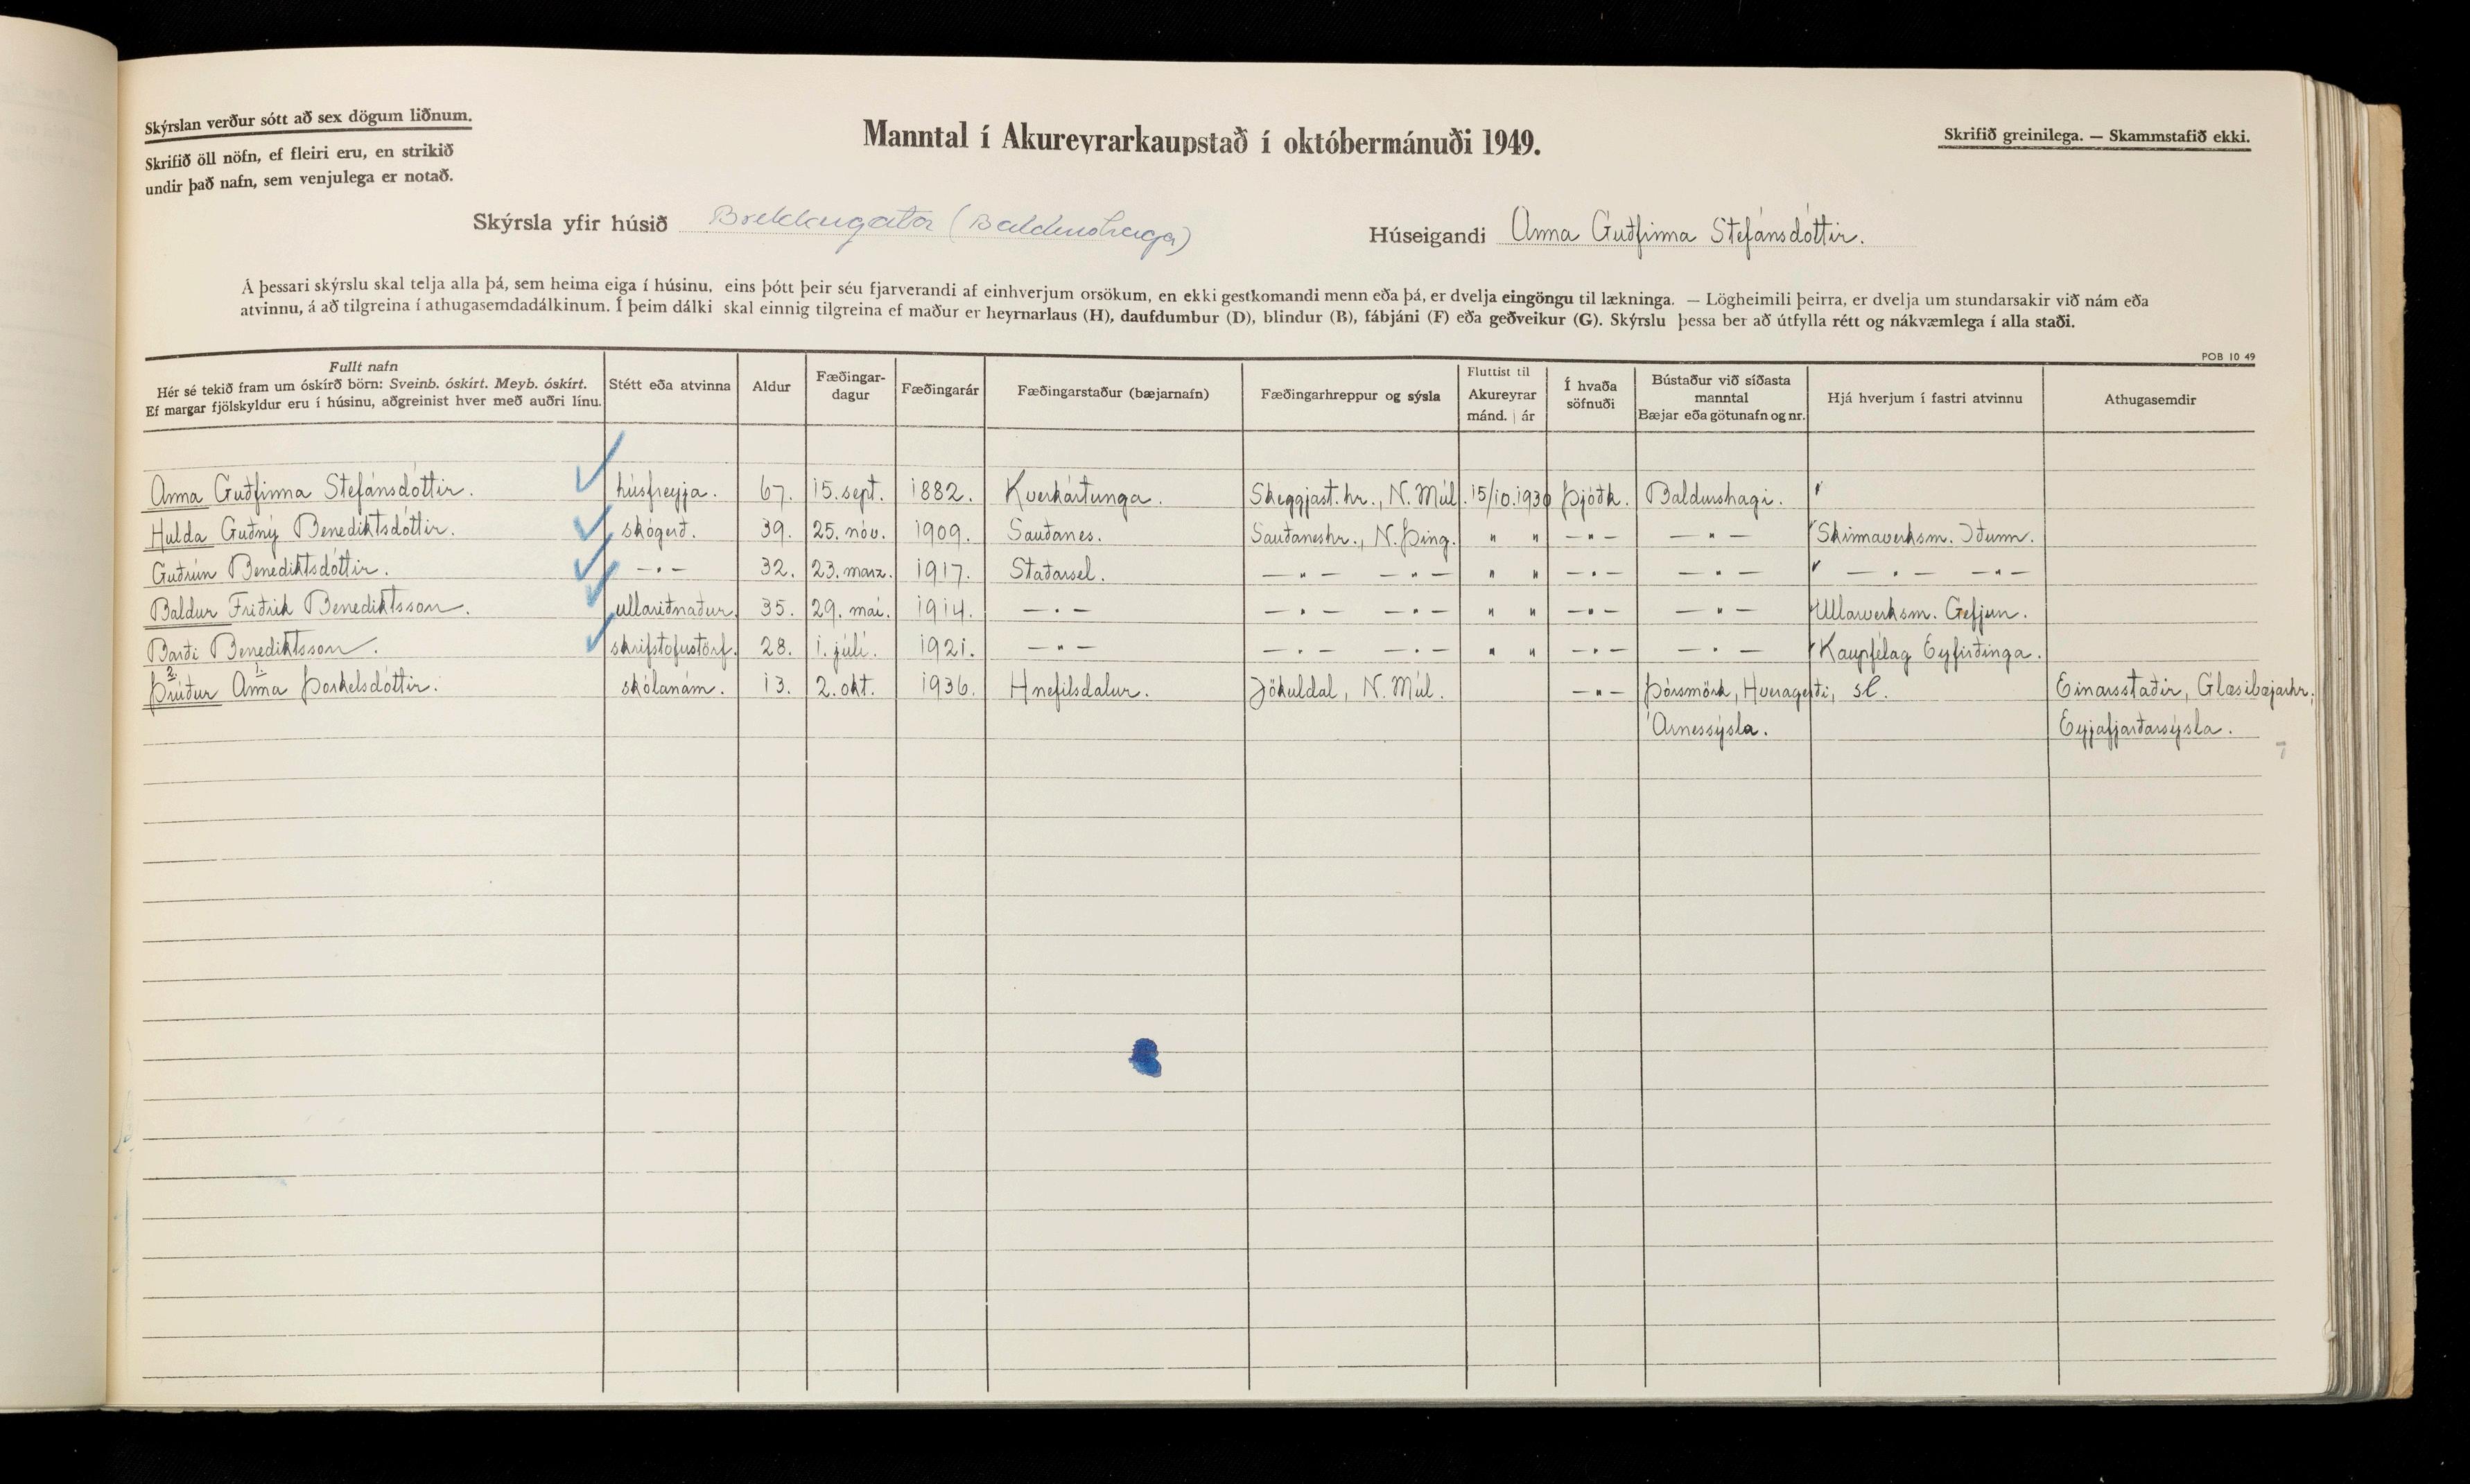 Skýrslan verður sótt að sex dögum liðnum.
Skrifið öll nöfn, ef fleiri eru, en strikið
undir það nafn, sem venjulega er notað.
Manntal í Akureyrarkaupstað í októbermánuði 1949.
Skrifið greinilega. — Skammstafið ekki.
Skýrsla yfir húsið Brekkugata (Baldurshaga)
Húseigandi Anna Guðfinna Stefánsdóttir.
Á þessari skýrslu skal telja alla þá, sem heima eiga í húsinu, eins þótt þeir séu fjarverandi af einhverjum orsökum, en ekki gestkomandi menn eða þá, er dvelja eingöngu til lækninga. — Lögheimili þeirra, er dvelja um stundarsakir við nám eða
atvinnu, á að tilgreina í athugasemdadálkinum. Í þeim dálki skal einnig tilgreina ef maður er heyrnarlaus (H), daufdumbur (D), blindur (B), fábjáni (F) eða geðveikur (G). Skýrslu þessa ber að útfylla rétt og nákvæmlega í alla staði.
POB 10 49
Fullt nafn
Hér sé tekið fram um óskírð börn: Sveinb. óskírt. Meyb. óskírt.
Ef margar fjölskyldur eru í húsinu, aðgreinist hver með auðri línu.
Stétt eða atvinna
Aldur
Fæðingar-
dagur
Fæðingarár
Fæðingarstaður (bæjarnafn)
Fæðingarhreppur og sýsla
Fluttist til
Akureyrar
mánd. | ár
Í hvaða
söfnuði
Bústaður við síðasta
manntal
Bæjar eða götunafn og nr.
Hjá hverjum í fastri atvinnu
Athugasemdir
Anna Guðfinna Stefánsdóttir. húsfreyja. 67. 15. sept. 1882. Kverkártunga. Skeggjast. hr., N. Múl. 15/10. 1930 Þjóðk. Baldurshagi. "
Hulda Guðný Benediktsdóttir. skógerð. 39. 25. nóv. 1909. Sauðanes. Sauðaneshr., N. Þing. " " — " — — " — Skinnaverksm. Iðunn.
Guðrún Benediktsdóttir. — " — 32. 23. marz. 1917. Staðarsel. — " — — " — " " — " — — " — — " — — " —
Baldur Friðrik Benediktsson. ullariðnaður. 35. 29. maí. 1914. — " — — " — — " — " " — " — — " — Ullarverksm. Gefjun.
Barði Benediktsson. skrifstofustörf. 28. 1. júlí. 1921. — " — — " — — " — " " — " — — " — Kaupfélag Eyfirðinga.
2. 1.
Þrúður Anna Þorkelsdóttir. skólanám. 13. 2. okt. 1936. Hnefilsdalur. Jökuldal, N. Múl. — " — Þórsmörk, Hveragerði, sl. Einarsstaðir, Glæsibæjarhr.,
Árnessýsla. Eyjafjarðarsýsla.
7